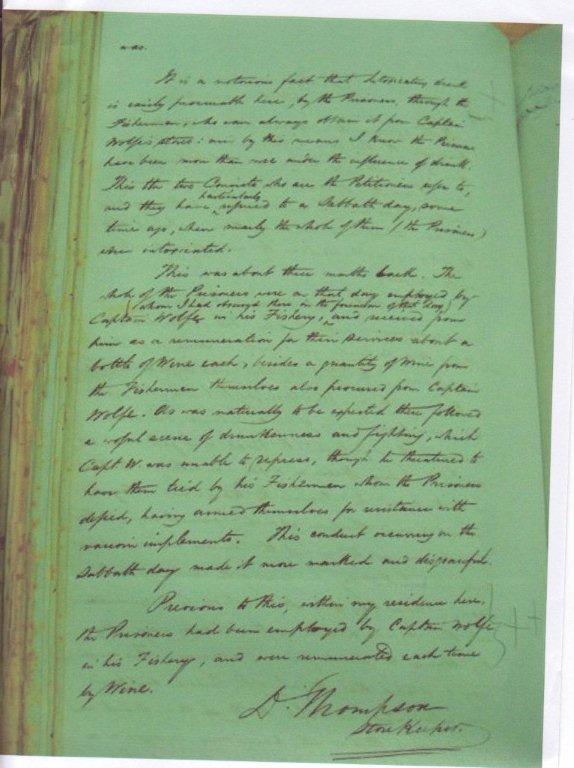 was.
It is a notorious fact that intoxicating drink
is easily procurable here, by the Prisoners, through the
Fishermen, who can always obtain it from Captain
Wolfe's stores: and by this means I know the Prisoners
have been more than once under the influence of drink.
This the two Convicts who are the Petitioners refer to,
particularly
and they have referred to a Sabbath day, some
time ago, when nearly the whole of them (the Prisoners)
were intoxicated.
This was about three months back. The
whole of the Prisoners were on that day employed by
(whom I had observed there on the forenoon of that day)
Captain Wolfe in his Fishery, and received from
him as a remuneration for their services about a
bottle of Wine each, besides a quantity of Wine from
the Fishermen themselves also procured from Captain
Wolfe. As was naturally to be expected there followed
a woful scene of drunkenness and fighting, which
Capt W. was unable to repress, though he threatened to
have them tied by his Fishermen whom the Prisoners
defied, having armed themselves for resistance with
various implements. This conduct occurring on the
Sabbath day made it more marked and disgraceful.
Previous to this, within my residence here,
the Prisoners had been employed by Captain Wolfe
in his Fishery, and were remunerated each time
by Wine.
D. Thompson
Store Keeper.